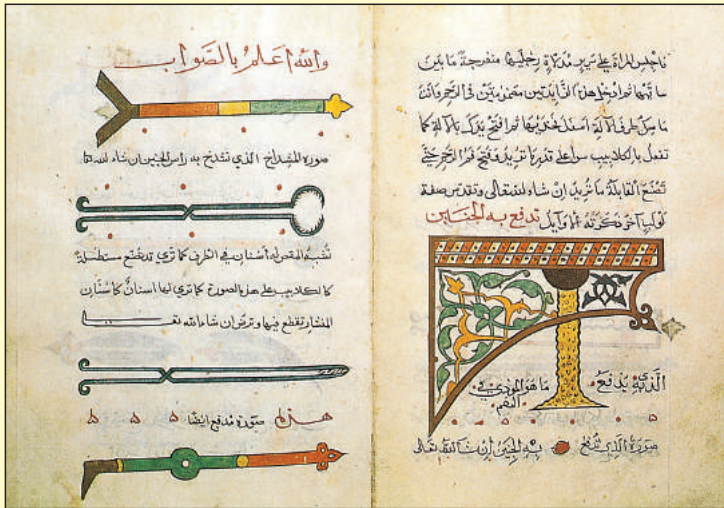 فاجلس المراة على سرير مدلاة رجليها منفرجة ما بين
ساقيها ثم ادخل هذا الزايدتين مضمومتين في الرحم وانت
ماسك طرف الالة اسفل فخذيها ثم افتح يدك بالالة كما
تفعل بالكلاليب سوا على قدر ما تريد وفتح فم الرحم حتى
تصنع القابلة ما تريد ان شاء الله تعالى صفة
لولب آخر ذكرته الاوايل تدفع به الجنين
الذي يدفع ما هو المودي في
الفم
صورة الذي تدفع به الجنين ان شا الله تعالى
والله اعلم بالصواب
صورة المشداخ الذي تشدخ به راس الجنين ان شاء الله تعا
تشبه المقص له اسنان في الطرف كما تري تصنع مستطيلة
كالكلاليب على هذه الصورة كما تري لها اسنان كاسنان
المنشار تقطع بها وترض ان شاء الله تعـ
هذه صورة مدفع ايضا